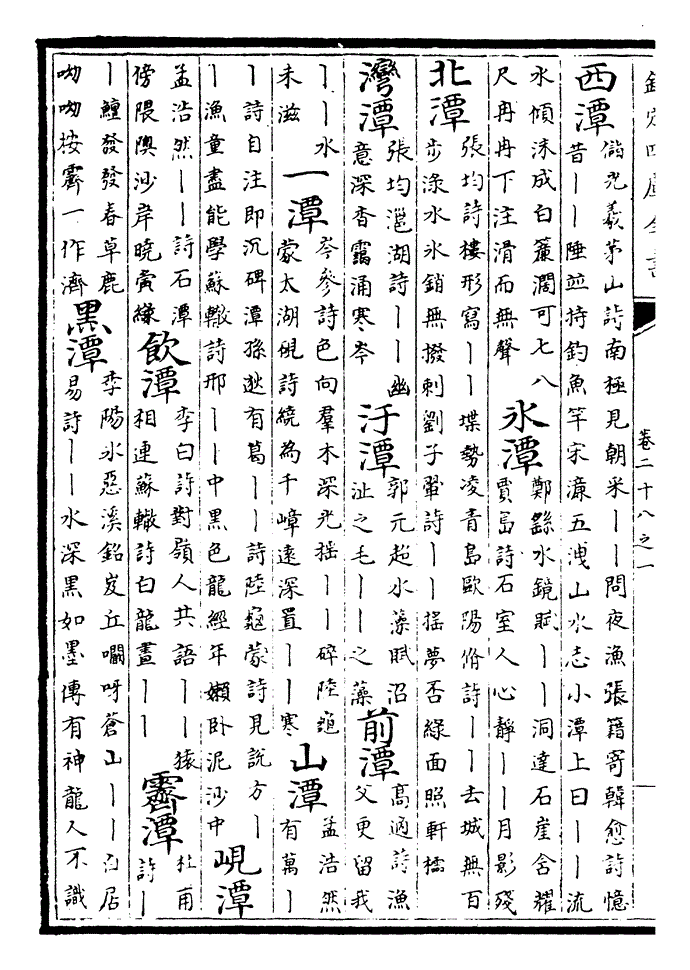 欽定四庫全書
卷二十八之一
西潭
儲光羲茅山詩南極見朝采丨丨問夜漁張籍寄韓愈詩憶
昔丨丨陲並持釣魚竿宋濂五洩山水志小潭上曰丨丨流
水傾沫成白簾濶可七八
尺冉冉下注滑而無聲
氷潭
鄭繇水鏡賦丨丨洞達石崖含耀
賈島詩石室人心靜丨丨月影殘
北潭
張均詩樓形寫丨丨堞勢凌青島歐陽脩詩丨丨去城無百
步淥水氷銷無撥剌劉子翬詩丨丨揺夢否綠面照軒檽
灣潭
張均㴩湖詩丨丨幽
意深香靄涌寒岑
汙潭
郭元超水藻賦沼
沚之毛丨丨之藻
前潭
髙適詩漁
父更留我
丨丨水
未滋
一潭
岑參詩色向羣木深光揺丨丨碎陸龜
蒙太湖硯詩繞為千嶂遠深置丨丨寒
山潭
孟浩然
有萬丨
丨詩自注即沉碑潭孫逖有葛丨丨詩陸龜蒙詩見說方丨
丨漁童盡能學蘇轍詩邢丨丨中黑色龍經年嬾卧泥沙中
峴潭
孟浩然丨丨詩石潭
傍隈隩沙岸曉夤緣
飲潭
李白詩對嶺人共語丨丨猿
相連蘇轍詩白龍晝丨丨
霽潭
杜甫
詩丨
丨鱣發發春草鹿
呦呦按霽一作濟
黑潭
李陽氷惡溪銘岌丘㘓呀蒼山丨丨白居
易詩丨丨水深黑如墨傳有神龍人不識